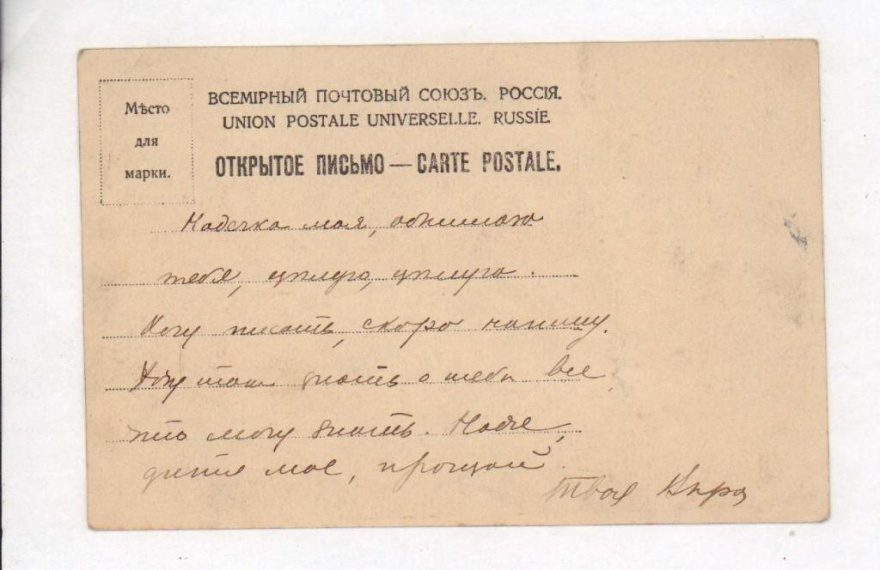 Мѣсто
для
марки.
ВСЕМІРНЫЙ ПОЧТОВЫЙ СОЮЗЪ. РОССІЯ.
UNION POSTALE UNIVERSELLE. RUSSIE.
ОТКРЫТОЕ ПИСЬМО — CARTE POSTALE.
Надечка моя, обнимаю
тебя, цѣлую, цѣлую.
Хочу писать, скоро напишу.
Хочу знать о тебѣ все
что могу знать. Надя,
дитя мое, прощай.
Твоя